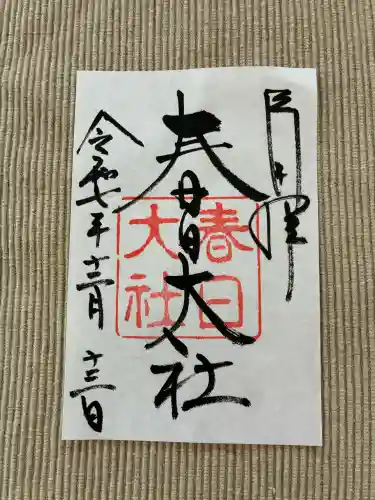 春日大社
春日
大社
令和七年十二月十三日